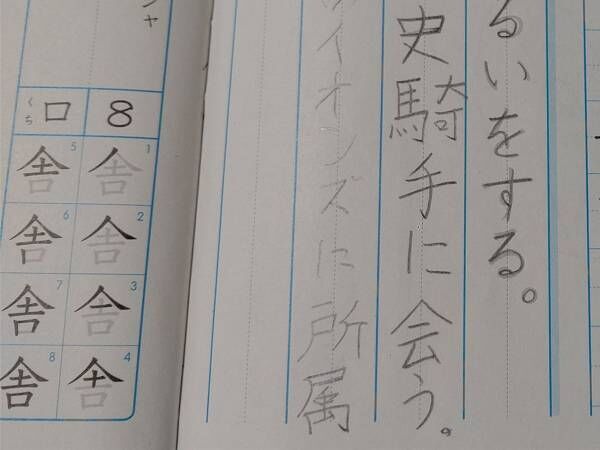 るいをする。
史騎手に会う。
イオンズに所属
シャ
8
口
くち
1 舎
2 舎
3 舎
4 舎
5 舎
6 舎
7 舎
8 舎